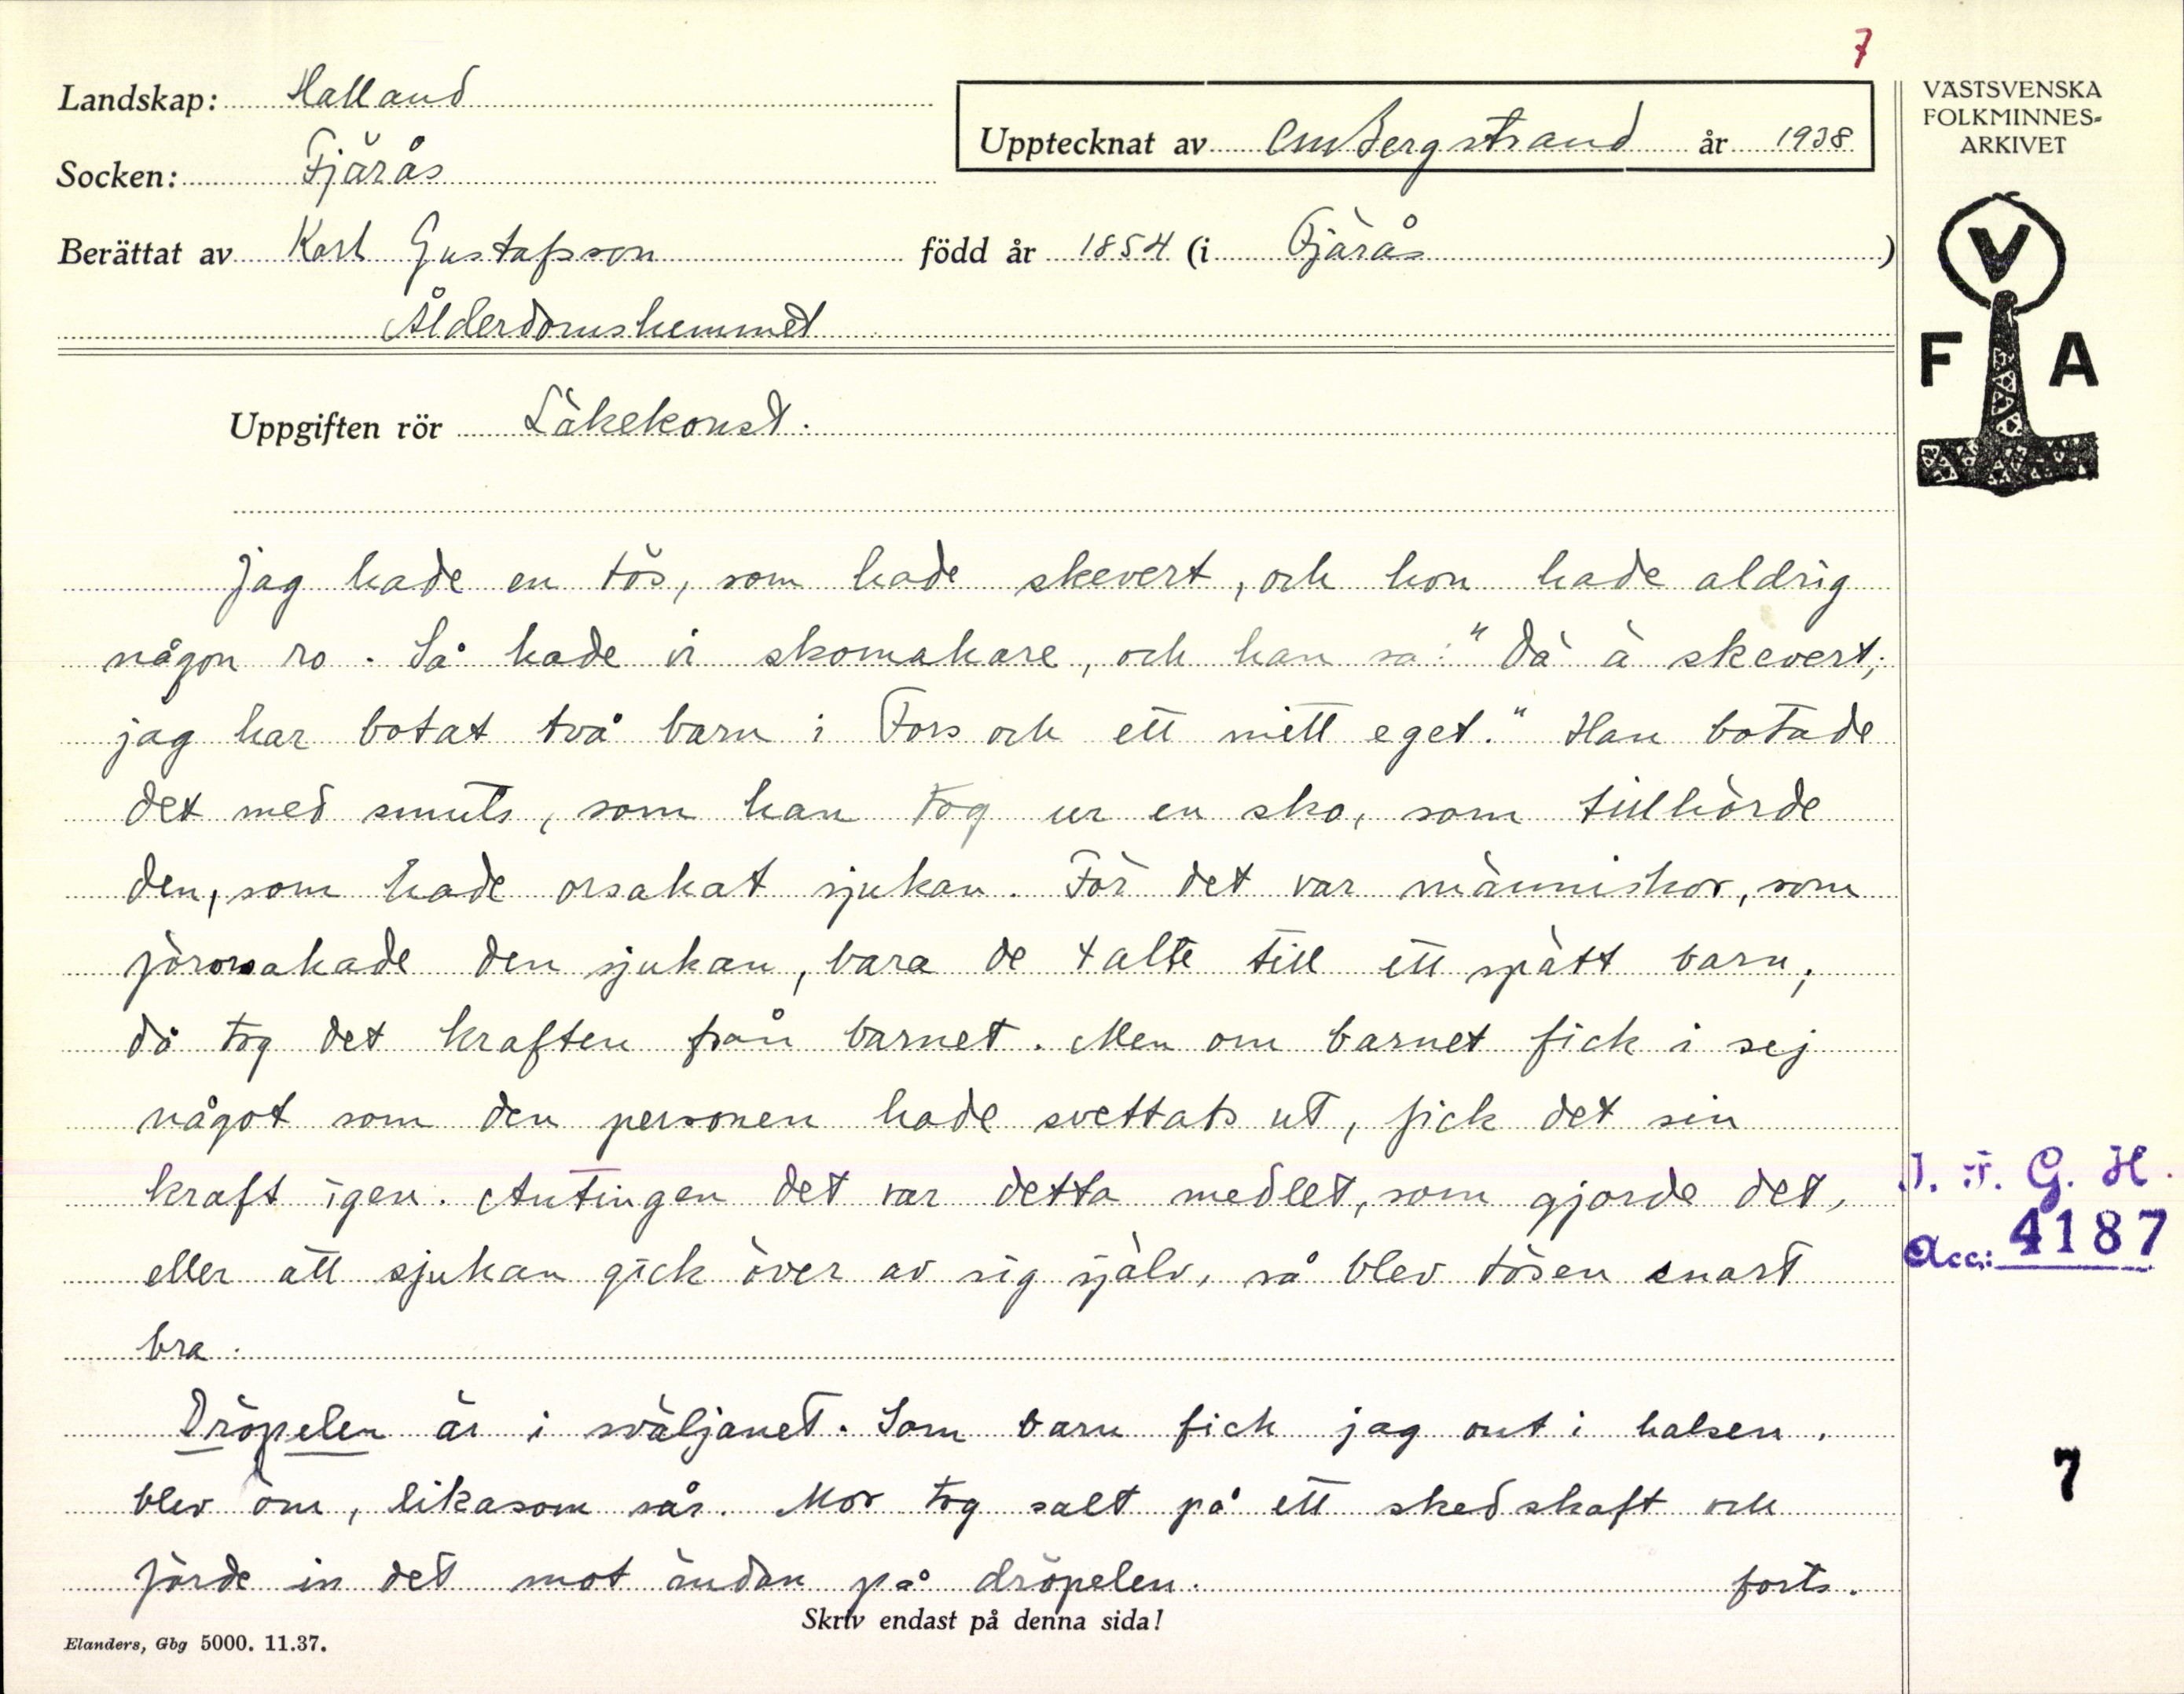 7
Landskap: Halland
Upptecknat av CMBergstrand år 1938
VÄSTSVENSKA
FOLKMINNES-
ARKIVET
Socken: Fjärås
Berättat av Karl Gustafsson född år 1854 (i Fjärås)
Ålderdomshemmet
V
F A
Uppgiften rör Läkekonst.
Jag hade en tös, som hade skevert, och hon hade aldrig
någon ro. Så hade vi skomakare, och han sa: "Dä ä skevert;
jag har botat två barn i Fors och ett mitt eget." Han botade
det med smuts, som han tog ur en sko, som tillhörde
den, som hade orsakat sjukan. För det var människor, som
förorsakade den sjukan, bara de talte till ett spätt barn;
då tog det kraften från barnet. Men om barnet fick i sej
något som den personen hade svettats ut, fick det sin
kraft igen. Antingen det var detta medlet, som gjorde det,
eller att sjukan gick över av sig själv, så blev tösen snart
bra.
I. F. G. H.
Acc: 4187
Dröpelen är i sväljanet. Som barn fick jag ont i halsen,
blev öm, likasom sår. Mor tog salt på ett skedskaft och
förde in det mot ändan på dröpelen. forts.
7
Skriv endast på denna sida!
Elanders, Gbg 5000. 11.37.